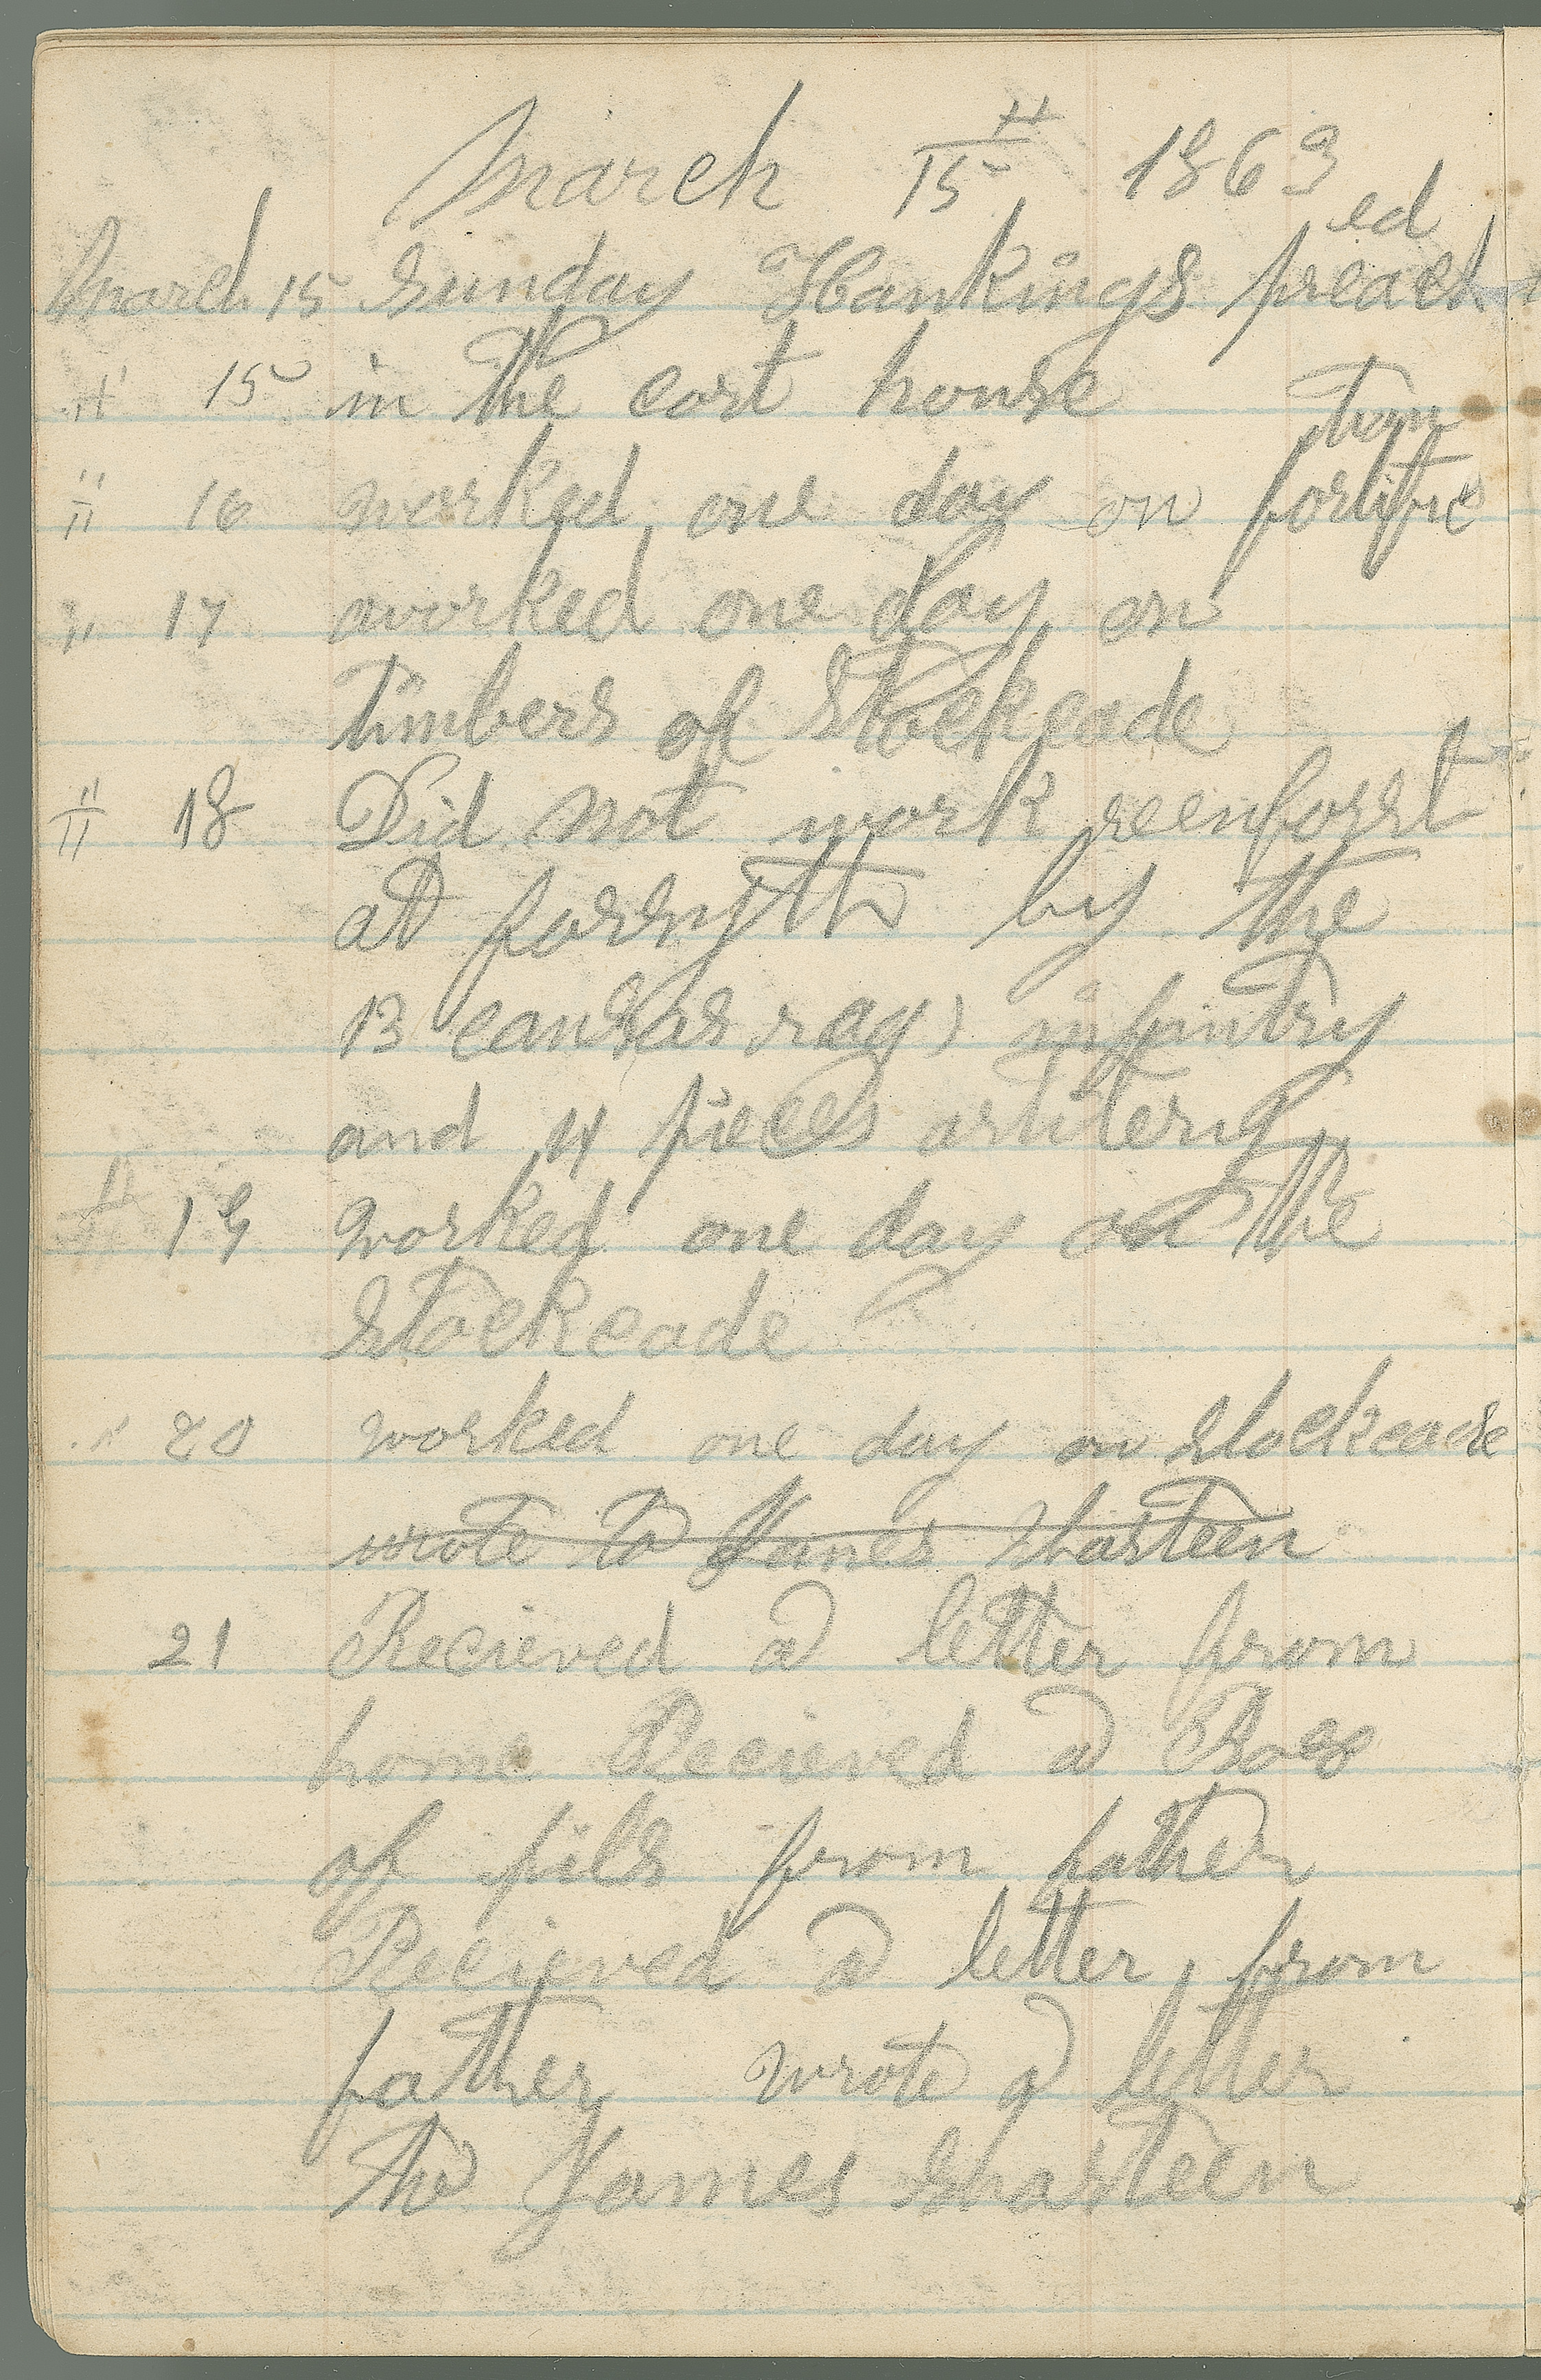 March 15 " 1863
March 15 Sunday Hankings preached
" 15 in the cort house
" 16 worked one day on fortifietion
" 17 worked one day on
timbers of Stockcade
" 18 Did not work reenforst
at forsyth by the
13 cansas rag) infantry
and 4 pieces artitery
" 19 worked one day on the
Stockcade
" 20 worked one day on stockcade
wrote to James Sharteen
21 Recieved a letter from
home Recieved a Box
of pils from father
Recieved a letter from
father wrote a letter
to James Sharteen